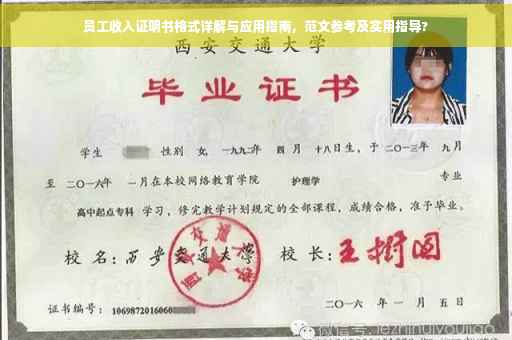 员工收入证明书格式详解与应用指南，范文参考及实用指导？
西安交通大学
毕业证书
学生 性别 女，一九九二年 四月 十八日生，于二〇一三年 九月
至 二〇一六年 一月在本校网络教育学院 护理学 专业
高中起点专科 学习，修完教学计划规定的全部课程，成绩合格，准予毕业。
校名：西安交通大学 校长：王树国
西安交通大学
证书编号：1069872016060
二〇一六年 一月 五日
微信号: jezhihuiyoujiao